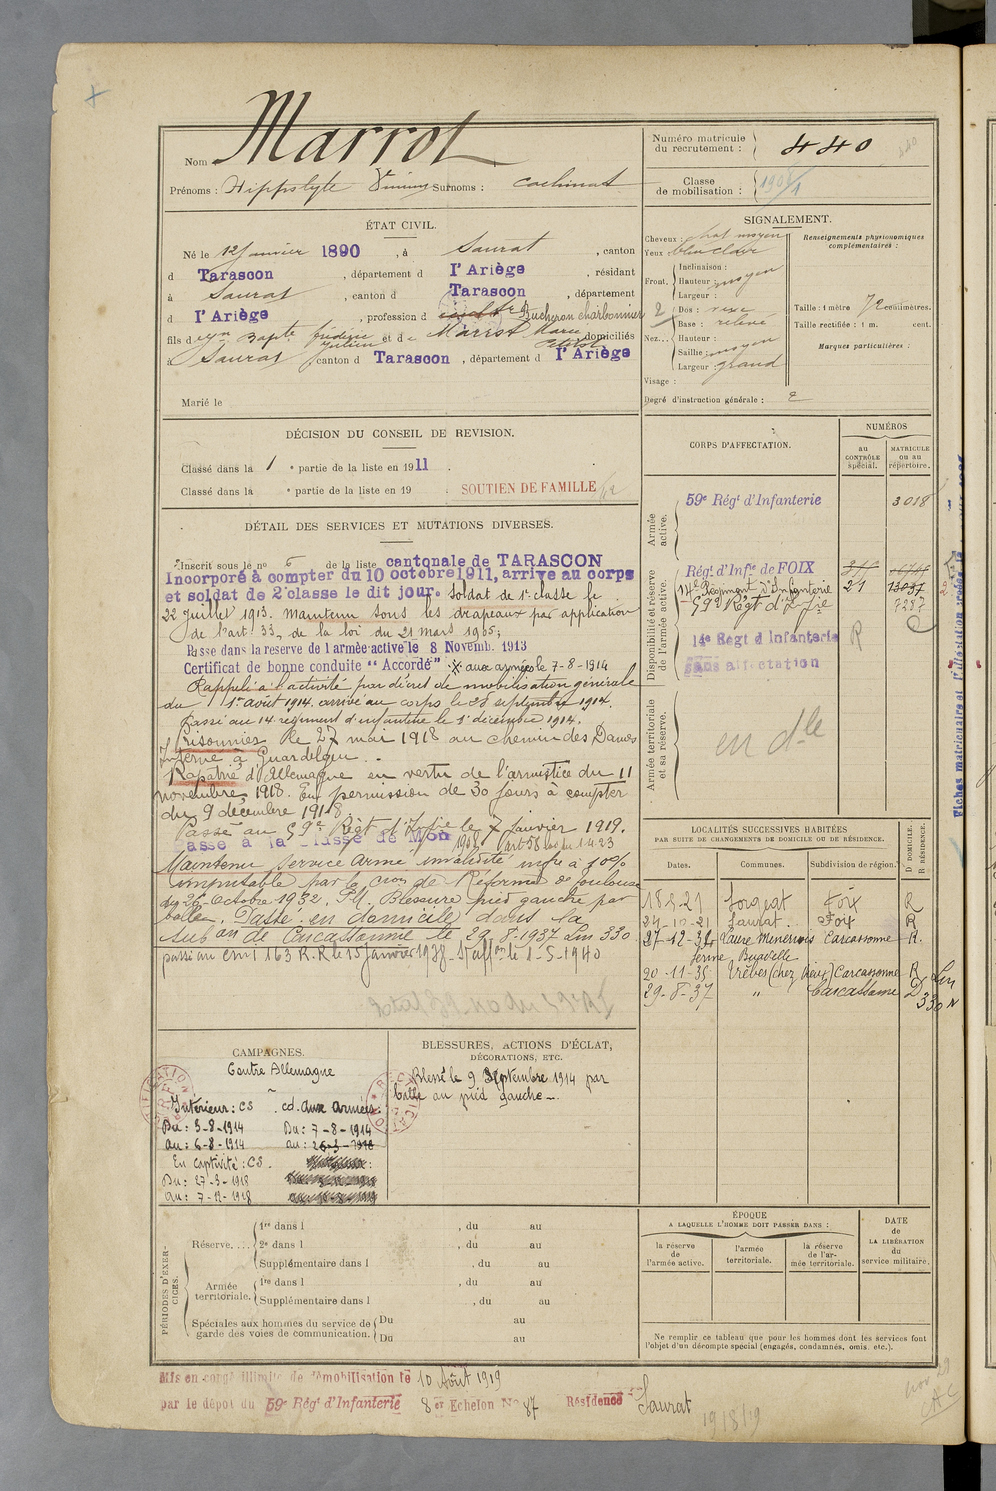 Nom Marrot
Prénoms : Hippolyte Surnoms : cachinat
Numéro matricule du recrutement : 440
Classe de mobilisation : 1908/1
ÉTAT CIVIL.
Né le 12 Janvier 1890, à Saurat, canton
d Tarascon, département d l'Ariège, résidant
à Saurat, canton d Tarascon, département
d l'Ariège, profession d Bucheron charbonnier
fils d et de Marrot Marie domiciliés
à Saurat canton d Tarascon, département d l'Ariège
Marié le
SIGNALEMENT.
Cheveux : chat moyen
Yeux bleu clair
Front. Inclinaison :
Hauteur : moyen
Largeur :
Nez... Dos : vexe
Base : relevé
Hauteur :
Saillie : moyen
Largeur : grand
Visage :
Degré d'instruction générale : 2
Renseignements physionomiques complémentaires :
Taille : 1 mètre 72 centimètres.
Taille rectifiée : 1 m. cent.
Marques particulières :
DÉCISION DU CONSEIL DE REVISION.
Classé dans la 1e partie de la liste en 1911.
Classé dans la e partie de la liste en 19 . SOUTIEN DE FAMILLE
DÉTAIL DES SERVICES ET MUTATIONS DIVERSES.
Inscrit sous le no 6 de la liste cantonale de TARASCON
Incorporé à compter du 10 octobre 1911, arrivé au corps
et soldat de 2e classe le dit jour. Soldat de 1e classe le
22 Juillet 1913. Maintenu sous les drapeaux par application
de l'art. 33, de la loi du 21 Mars 1905;
Passé dans la reserve de l'armée active le 8 Novemb. 1913
Certificat de bonne conduite "Accordé" X aux armées le 7-8-1914
Rappelé à l'activité par décret de mobilisation générale
du 1er août 1914. arrivé au corps le 28 septembre 1914.
Passé au 14e régiment d'infanterie le 1er décembre 1914.
Prisonnier le 27 mai 1918 au chemin des Dames
Interné à Guardelgen.
Rapatrié d'Allemagne en vertu de l'armistice du 11
novembre 1918. En permission de 30 jours à compter
du 9 décembre 1918
Passé au 59e Régt d'Infrie le 7 Janvier 1919.
Passé à la classe de Mon 1908 Art 58 loi du 1.4.23
Maintenu service armé invalidité infre à 10%
imputable par la Cion de Réforme de Toulouse
du 26 Octobre 1932. Pl. Blessure pied gauche par
balle. Passé en domicile dans la
Subon de Carcassonne le 29.8.1937 Lin 330
passé au Cmi 163 R.R. le 15 Janvier 1938. St affon le 1-5-1940
CORPS D'AFFECTATION.
NUMÉROS
AU CONTRÔLE spécial.
MATRICULE ou au répertoire.
Armée active.
59e Régt d'Infanterie 3018
Disponibilité et réserve de l'armée active.
Régt d'Infie de FOIX
14e Régiment d'Infanterie 21 13037
59e Régt d'Infrie 7287
14e Régt d'Infanterie R
sans affectation
Armée territoriale et sa réserve.
en dle
LOCALITÉS SUCCESSIVES HABITÉES
PAR SUITE DE CHANGEMENTS DE DOMICILE OU DE RÉSIDENCE.
Dates. Communes. Subdivision de région. D. DOMICILE. R. RÉSIDENCE.
18-5-21 Sorgeat Foix R
24-10-21 Saurat Foix R
27-12-34 Laure Minervois Carcassonne R.
ferme Buadelle
20-11-35 Trèbes (chez Carcassonne R
29-8-37 " Carcassonne D Lin 330 N
CAMPAGNES.
Contre Allemagne
Intérieur : CS cd. aux armées :
Du : 3-8-1914 Du : 7-8-1914
au : 6-8-1914 au :
En captivité : CS.
Du : 27-5-1918
au : 7-12-1918
BLESSURES, ACTIONS D'ÉCLAT, DÉCORATIONS, ETC.
Blessé le 9 Septembre 1914 par
balle au pied gauche.
PÉRIODES D'EXERCICES.
Réserve.... 1re dans l , du au
2e dans l , du au
Supplémentaire dans l , du au
Armée territoriale. 1re dans l , du au
Supplémentaire dans l , du au
Spéciales aux hommes du service de garde des voies de communication. Du au
Du au
ÉPOQUE
A LAQUELLE L'HOMME DOIT PASSER DANS :
la réserve de l'armée active.
l'armée territoriale.
la réserve de l'armée territoriale.
DATE de LA LIBÉRATION du service militaire.
Ne remplir ce tableau que pour les hommes dont les services font
l'objet d'un décompte spécial (engagés, condamnés, omis, etc.).
Mis en congé illimité de démobilisation le 10 Août 1919
par le dépôt du 59e Régt d'Infanterie 8er Echelon No 87 Résidence Saurat